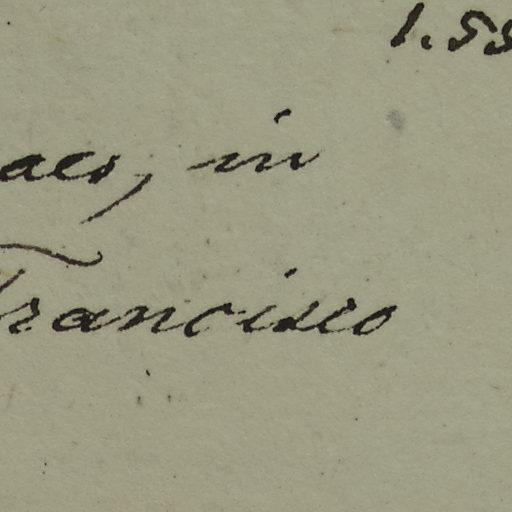 1.55
aes, in
Francisco